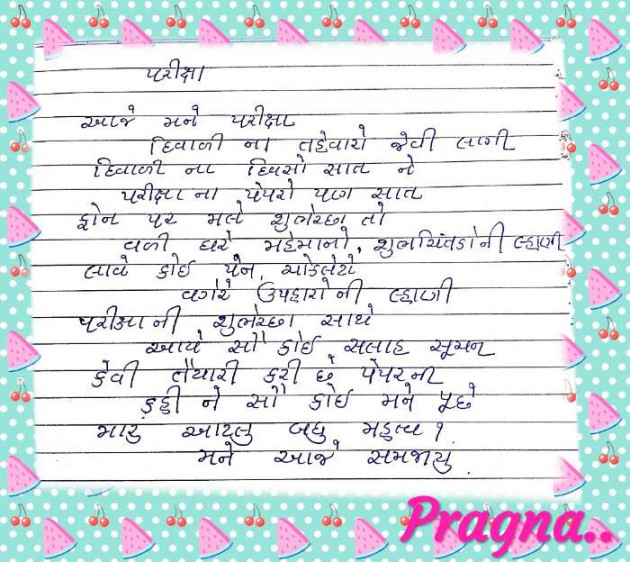 પરીક્ષા
આજે મને પરીક્ષા
દિવાળી ના તહેવારો જેવી લાગી
દિવાળી ના દિવસો સાત ને
પરીક્ષા ના પેપરો પણ સાત
ફોન પર મલે શુભેચ્છા તો
વળી ઘરે મહેમાનો, શુભચિંતકોની લ્હાણી
લાવે કોઈ પેન, ચોકલેટો
વગેરે ઉપહારોની લ્હાણી
પરીક્ષાની શુભેચ્છા સાથે
આપે સૌ કોઈ સલાહ સૂચન
કેવી તૈયારી કરી છે પેપરની
કહી ને સૌ કોઈ મને પૂછે
મારુ આટલુ બધુ મહત્વ ?
મને આજે સમજાયુ.
Pragna..